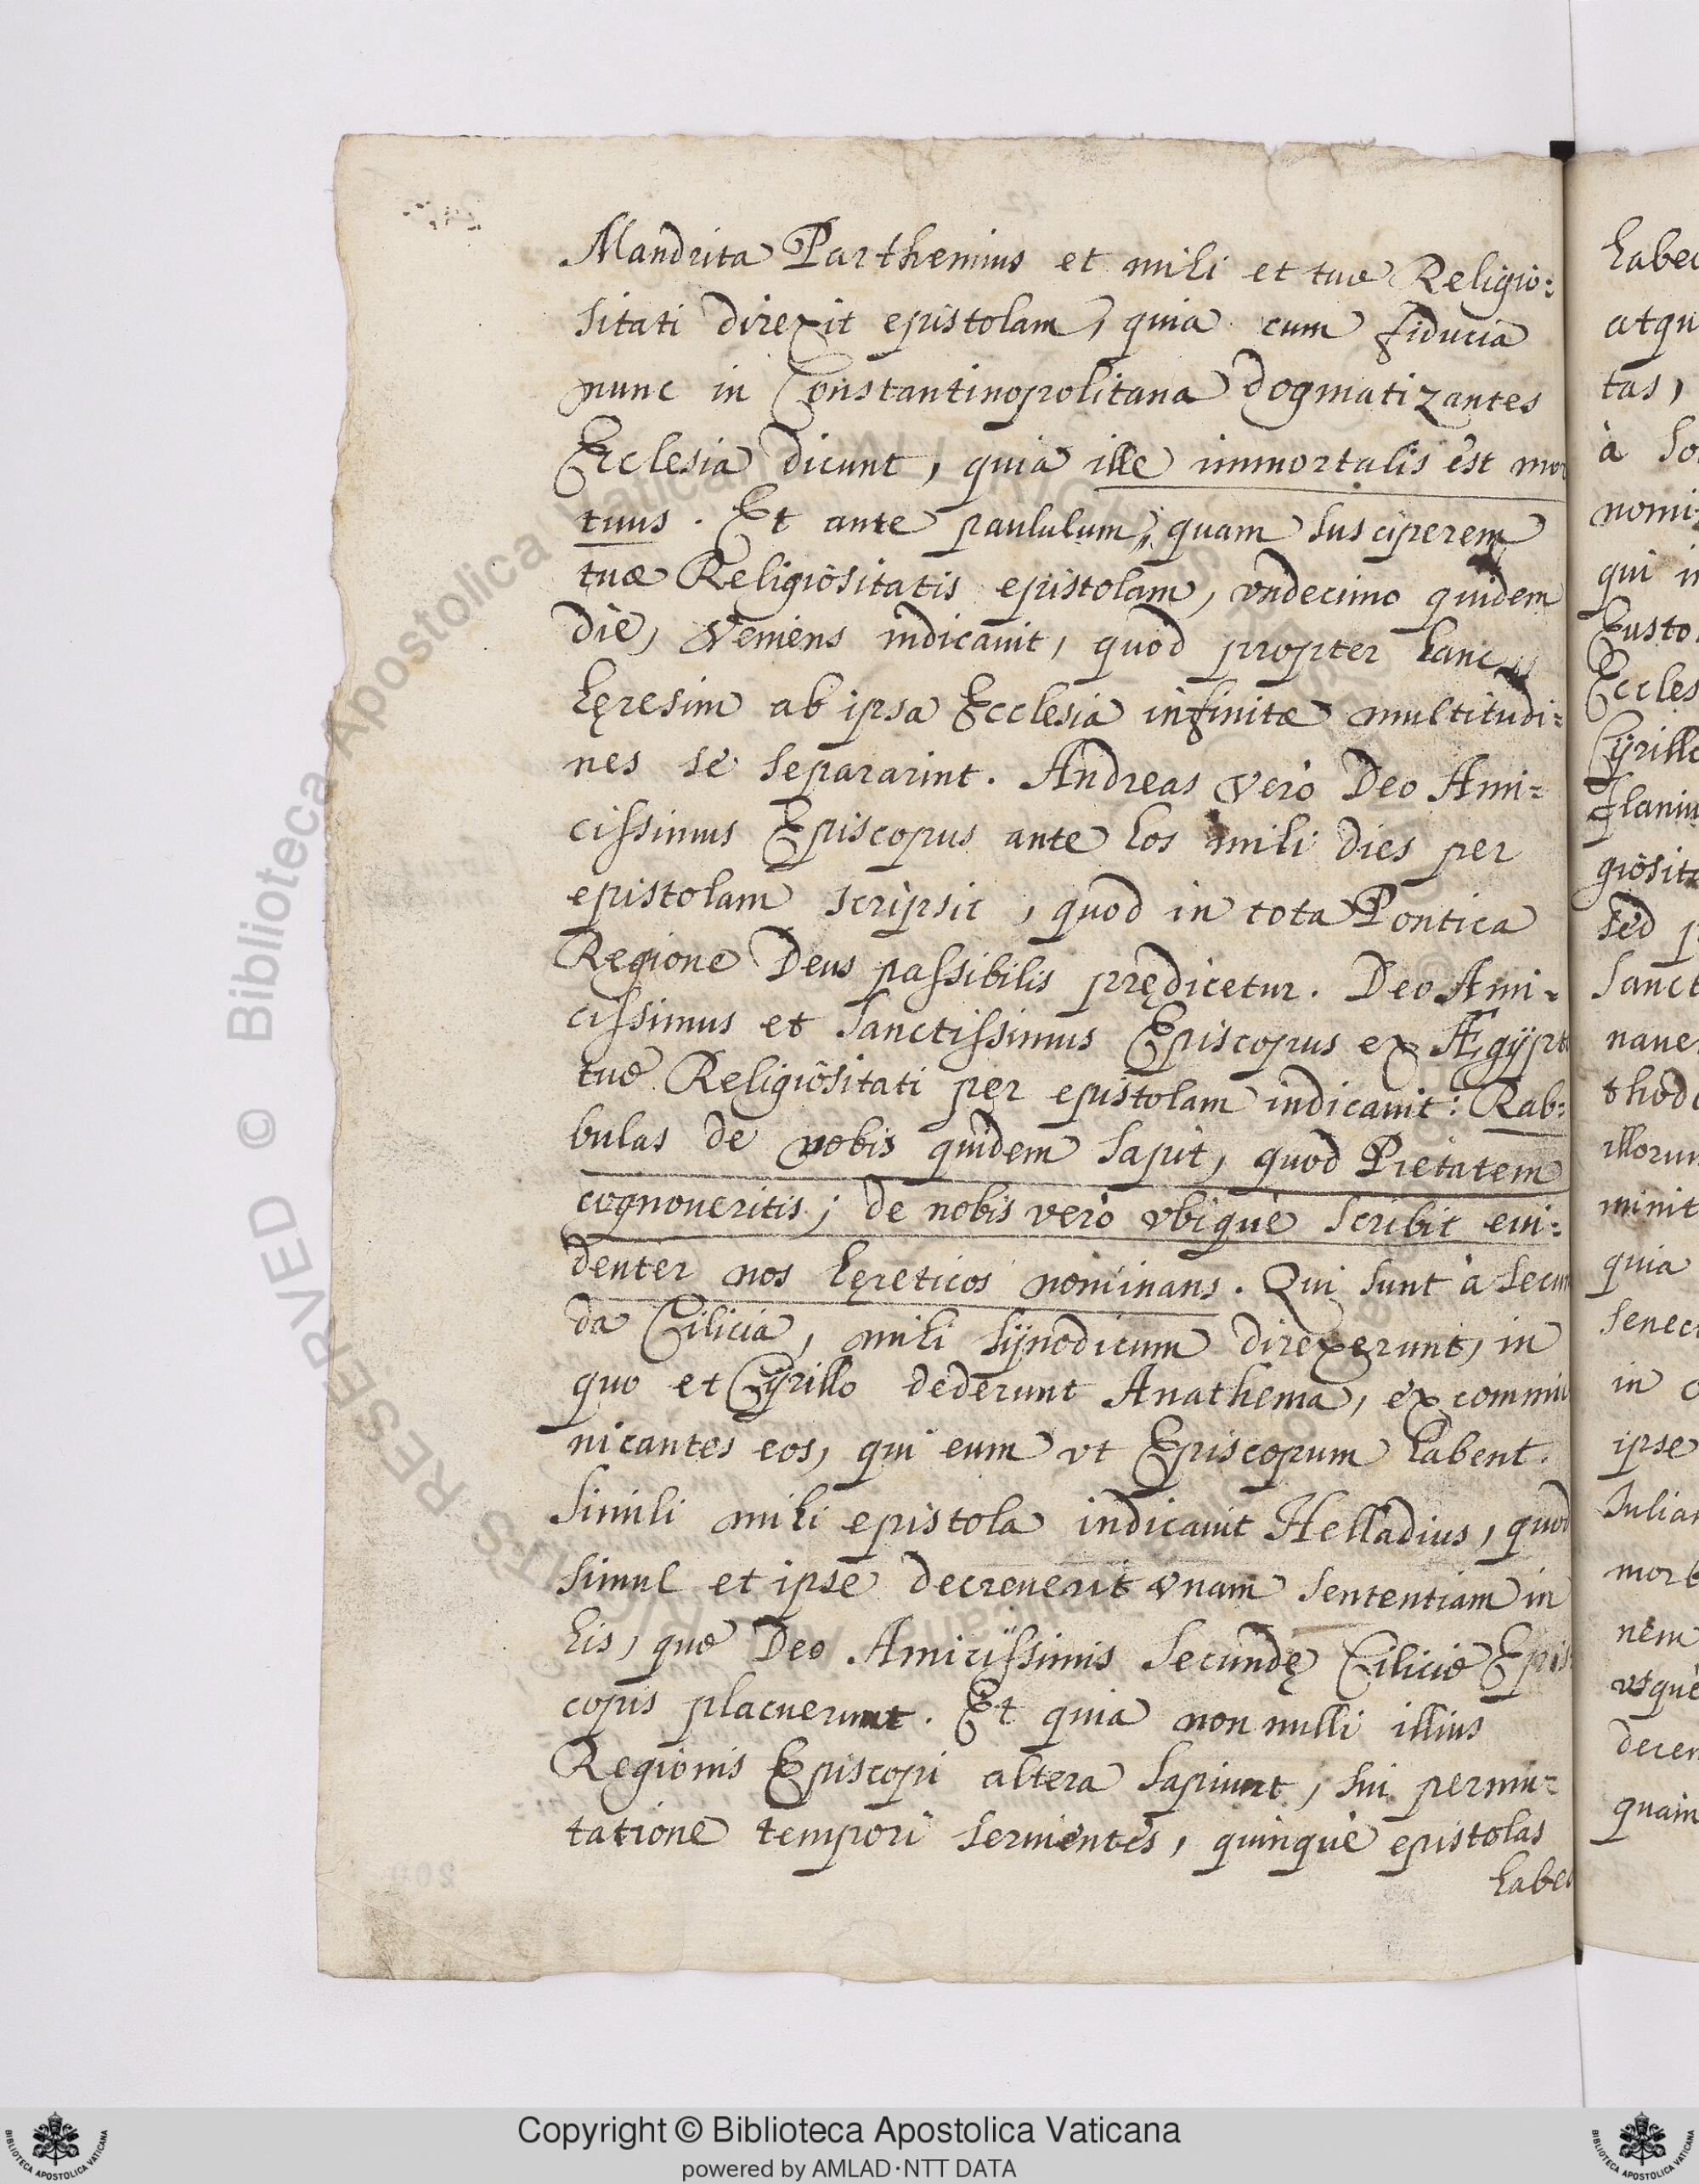 Mandrita Parthenius et mihi et tuæ Religio:
sitati direxit epistolam, quia cum fiducia
nunc in Constantinopolitana dogmatizantes
Ecclesia dicunt, quia ille immortalis est mor
tuus. Et ante paululum, quam susciperem
tuæ Religiositatis epistolam, vndecimo quidem
die, veniens indicauit, quod propter hanc
hęresim ab ipsa Ecclesia infinitæ multitudi=
nes se separarint. Andreas verò Deo Ami=
cissimus Episcopus ante hos mihi dies per
epistolam scripsit, quod in tota Pontica
Regione Deus passibilis prędicetur. Deo Ami=
cissimus et Sanctissimus Episcopus ex Ægÿpto
tuæ Religiositati per epistolam indicauit: Rab:
bulas de vobis quidem sapit, quod Pietatem
cognoueritis; de nobis verò vbique scribit eui:
denter nos hęreticos nominans. Qui sunt à Secun
da Cilicia, mihi sÿnodicum direxerunt, in
quo et Cÿrillo dederunt Anathema, excommu
nicantes eos, qui eum vt Episcopum habent.
Simili mihi epistola indicauit Helladius, quod
simul et ipse decreuerit vnam sententiam in
his, quæ Deo Amicissimis Secundę Ciliciæ Epis
copis placuerunt. Et quia non nulli illius
Regionis Episcopi altera sapiunt, sui permu=
tatione tempori seruientes, quinque epistolas
habeo
habeo
atqu
tas,
à So
nomi
qui in
Eusto
Eccles
Cÿrillo
giosita
sed p
Sanct
naue
thodo
illorum
minit
quia
Senec
in c
ipse
Iulian
mort
nem
vsque
decer
quam
© Biblioteca Apostolica Vaticana ALL RIGHTS RESERVED
Copyright © Biblioteca Apostolica Vaticana
powered by AMLAD·NTT DATA
BIBLIOTECA APOSTOLICA VATICANA
BIBLIOTECA APOSTOLICA VATICANA